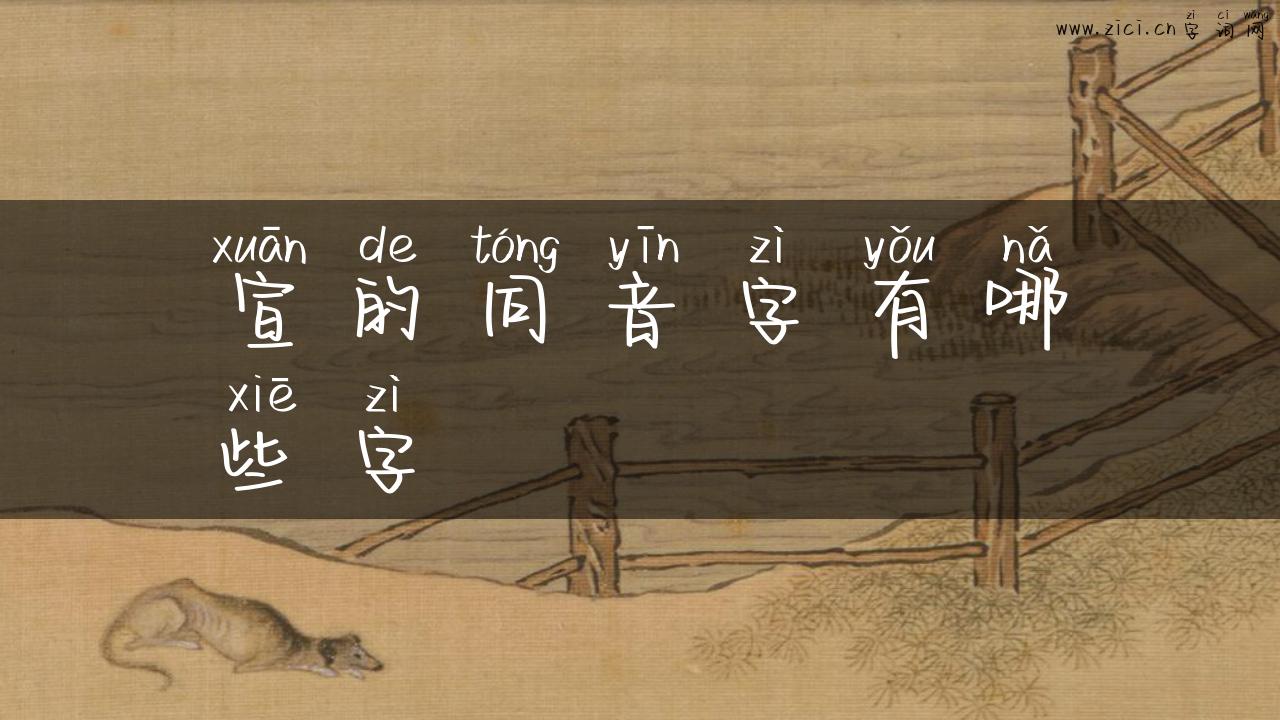 zì cí wǎng
www.zici.cn 字词网
xuān de tóng yīn zì yǒu nǎ
宣的同音字有哪
xiē zì
些字